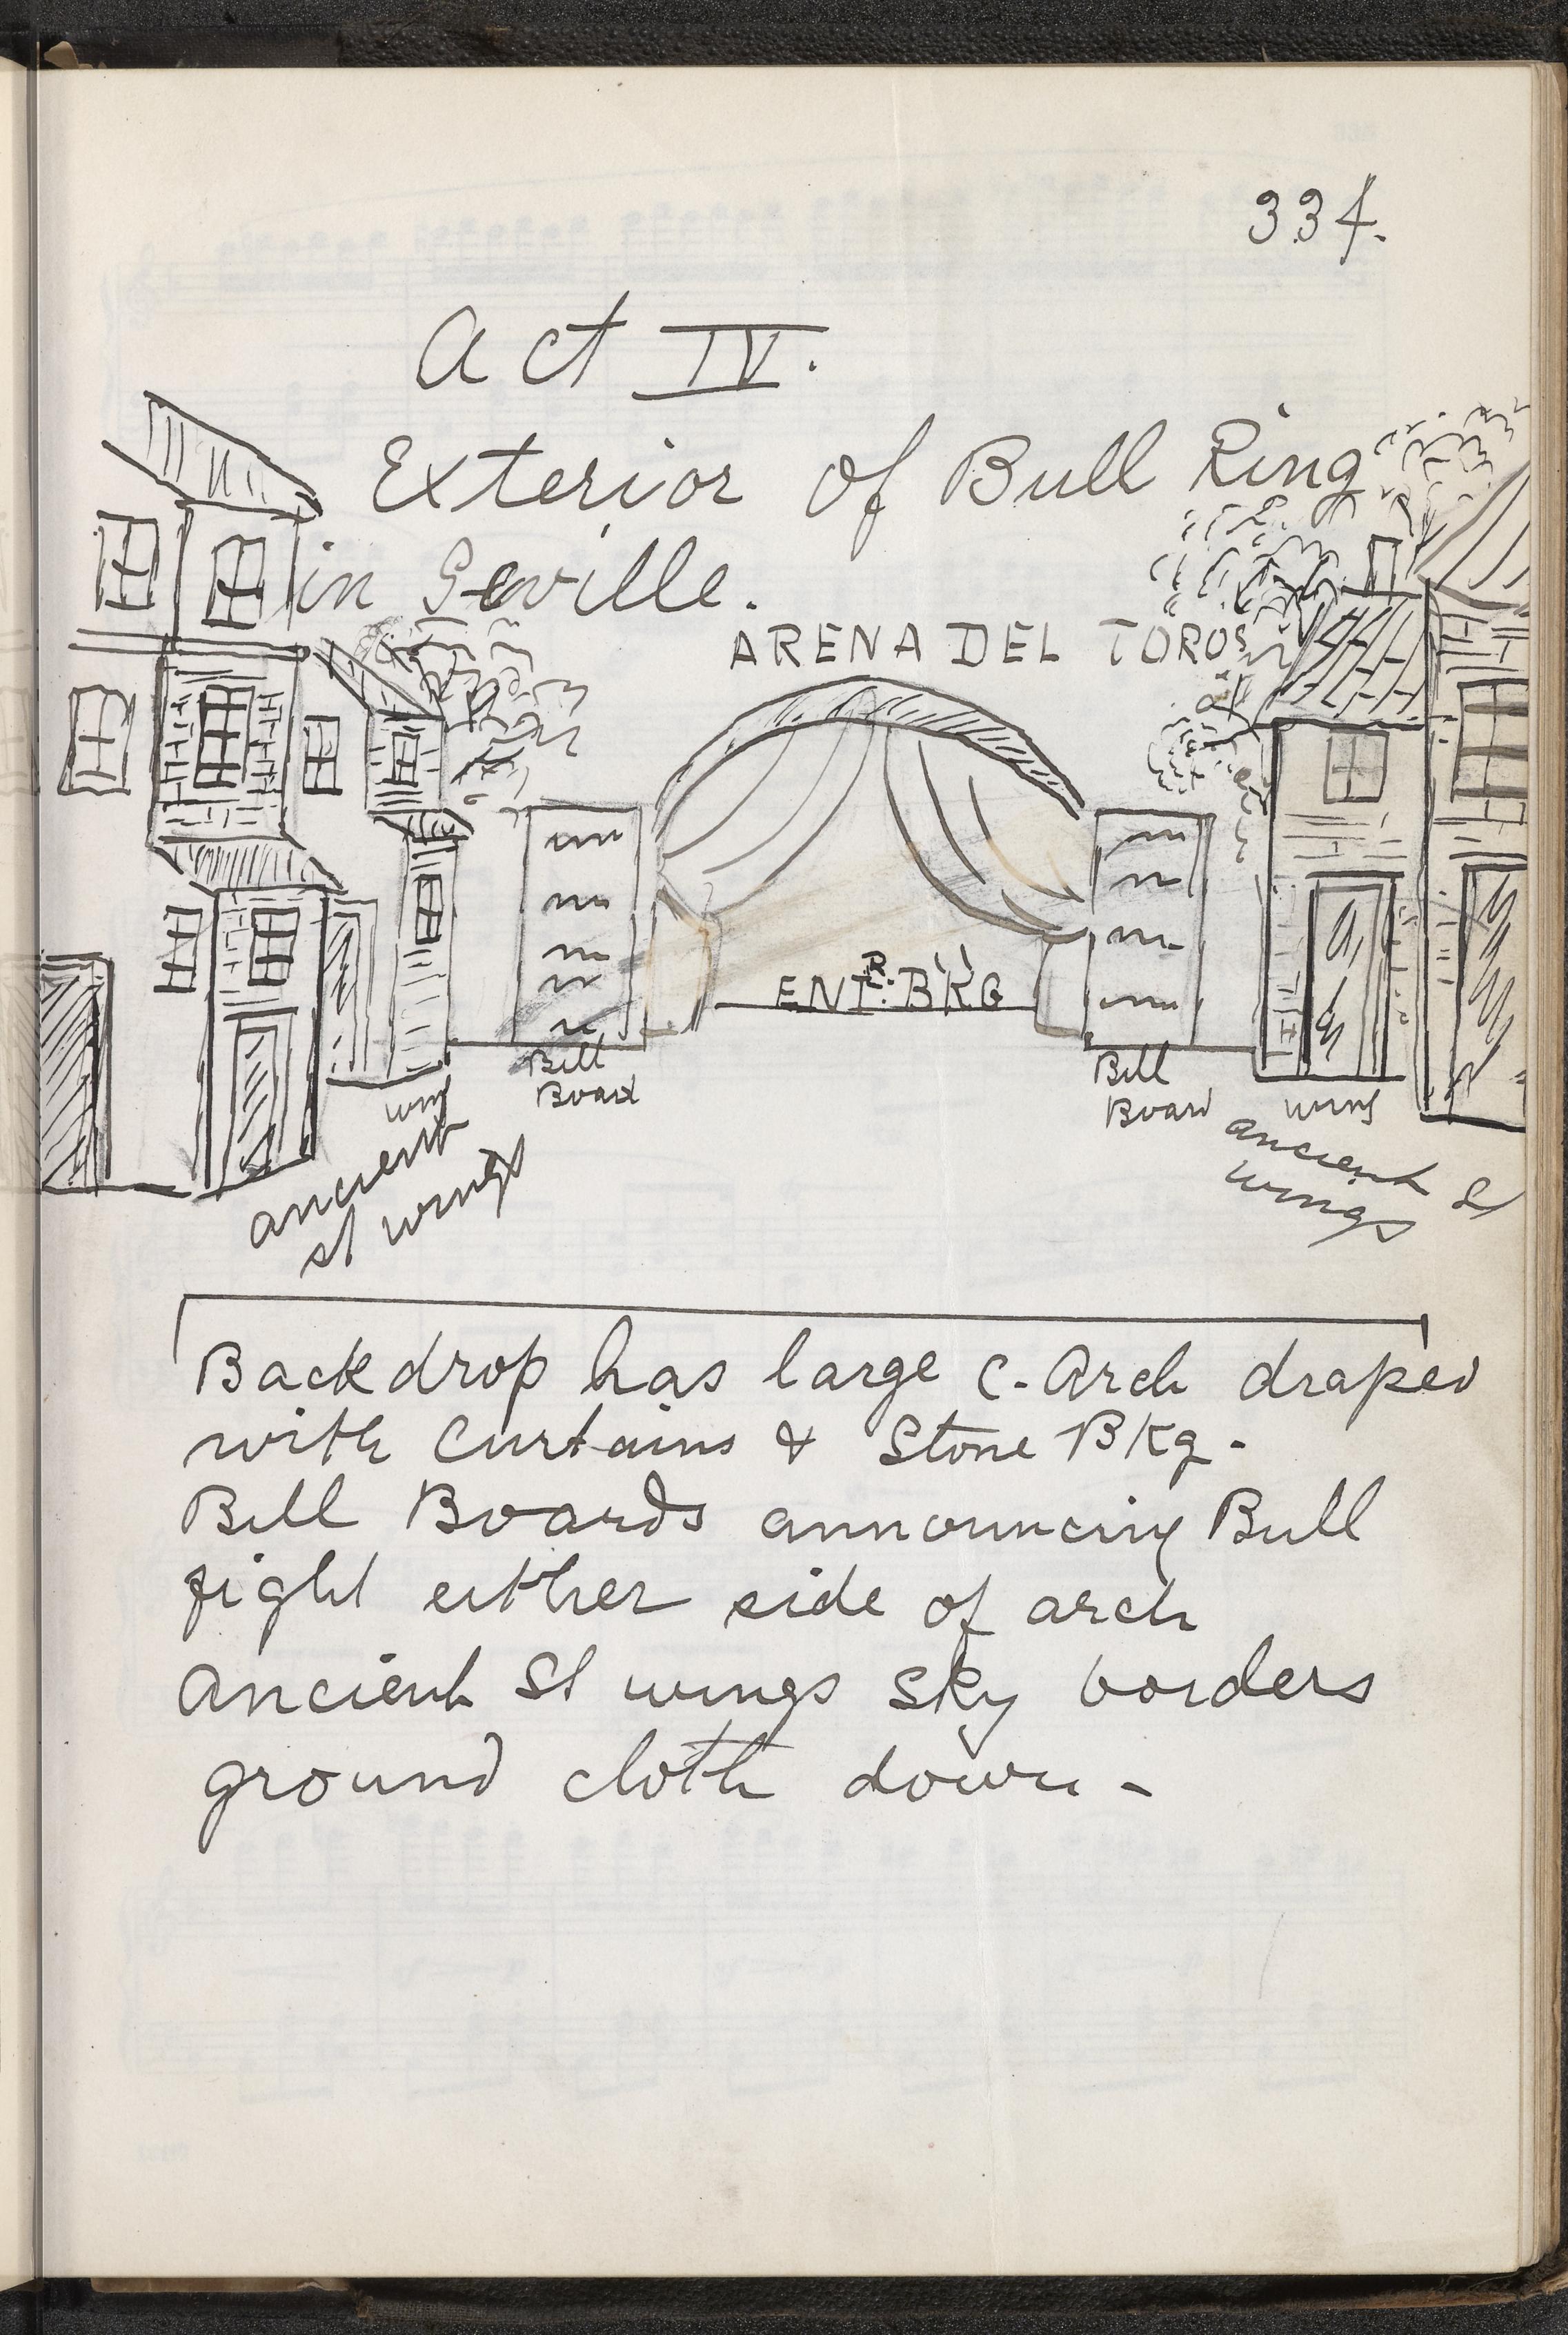 334.
Act IV.
Exterior of Bull Ring
in Seville.
ARENA DEL TOROS
ENTR. BKG
Bill
Board
Bill
Board
wing
wing
ancient
st wings
ancient St
wings
Backdrop has large C. Arch draped
with Curtains & Stone BKg -
Bill Boards announcing Bull
fight either side of arch
Ancient St wings sky borders
ground cloth down -